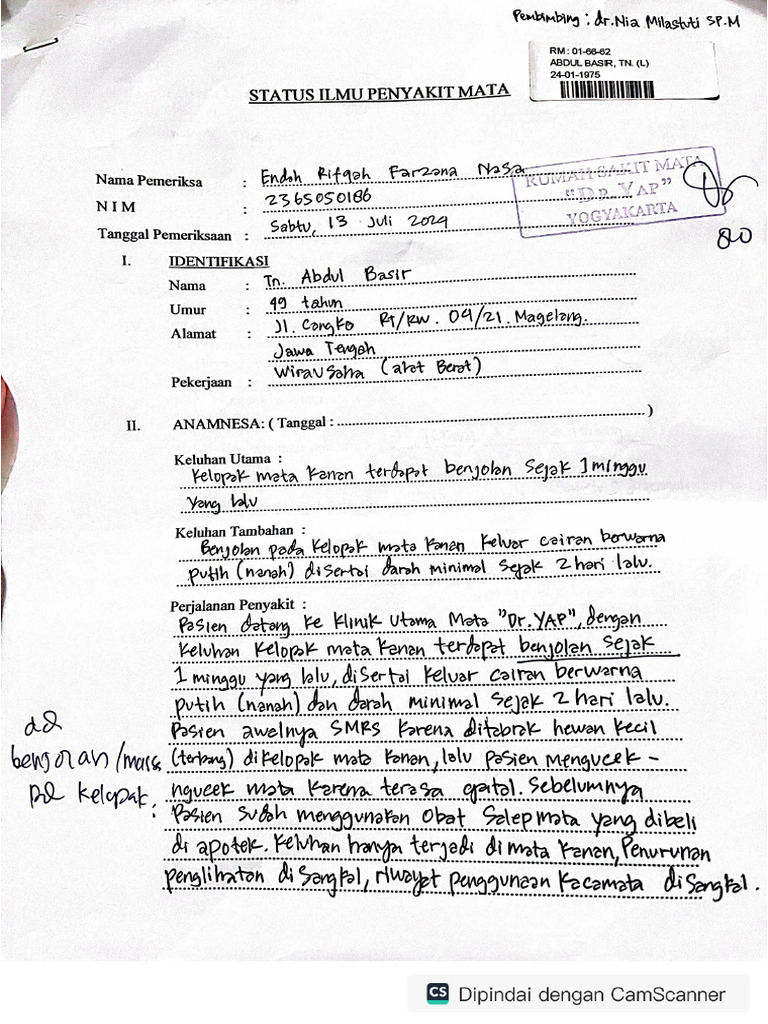 Pembimbing : dr. Nia Milastuti SP.M
RM : 01-66-62
ABDUL BASIR, TN. (L)
24-01-1975
STATUS ILMU PENYAKIT MATA
Nama Pemeriksa : Endah Rifqah Farzana Nasa
N I M : 2365050186
Tanggal Pemeriksaan : Sabtu, 13 Juli 2024
RUMAH SAKIT MATA
"DR. YAP"
YOGYAKARTA
80
I. IDENTIFIKASI
Nama : Tn. Abdul Basir
Umur : 49 tahun
Alamat : Jl. Cangko RT/RW. 04/21. Magelang.
Jawa Tengah
Pekerjaan : Wirausaha (alat Berat)
II. ANAMNESA: ( Tanggal : )
Keluhan Utama :
Kelopak mata kanan terdapat benjolan sejak 1 minggu
yang lalu
Keluhan Tambahan :
Benjolan pada kelopak mata kanan keluar cairan berwarna
putih (nanah) disertai darah minimal sejak 2 hari lalu.
Perjalanan Penyakit :
Pasien datang ke Klinik Utama Mata "Dr.YAP", dengan
keluhan kelopak mata kanan terdapat benjolan sejak
1 minggu yang lalu, disertai keluar cairan berwarna
putih (nanah) dan darah minimal sejak 2 hari lalu.
Pasien awalnya SMRS karena ditabrak hewan kecil
(terbang) di kelopak mata kanan, lalu pasien mengucek -
ngucek mata karena terasa gatal. Sebelumnya
Pasien sudah menggunakan obat salep mata yang dibeli
di apotek. Keluhan hanya terjadi di mata kanan, Penurunan
penglihatan disangkal, riwayat penggunaan kacamata disangkal.
benjolan/massa
pd kelopak.
CS Dipindai dengan CamScanner